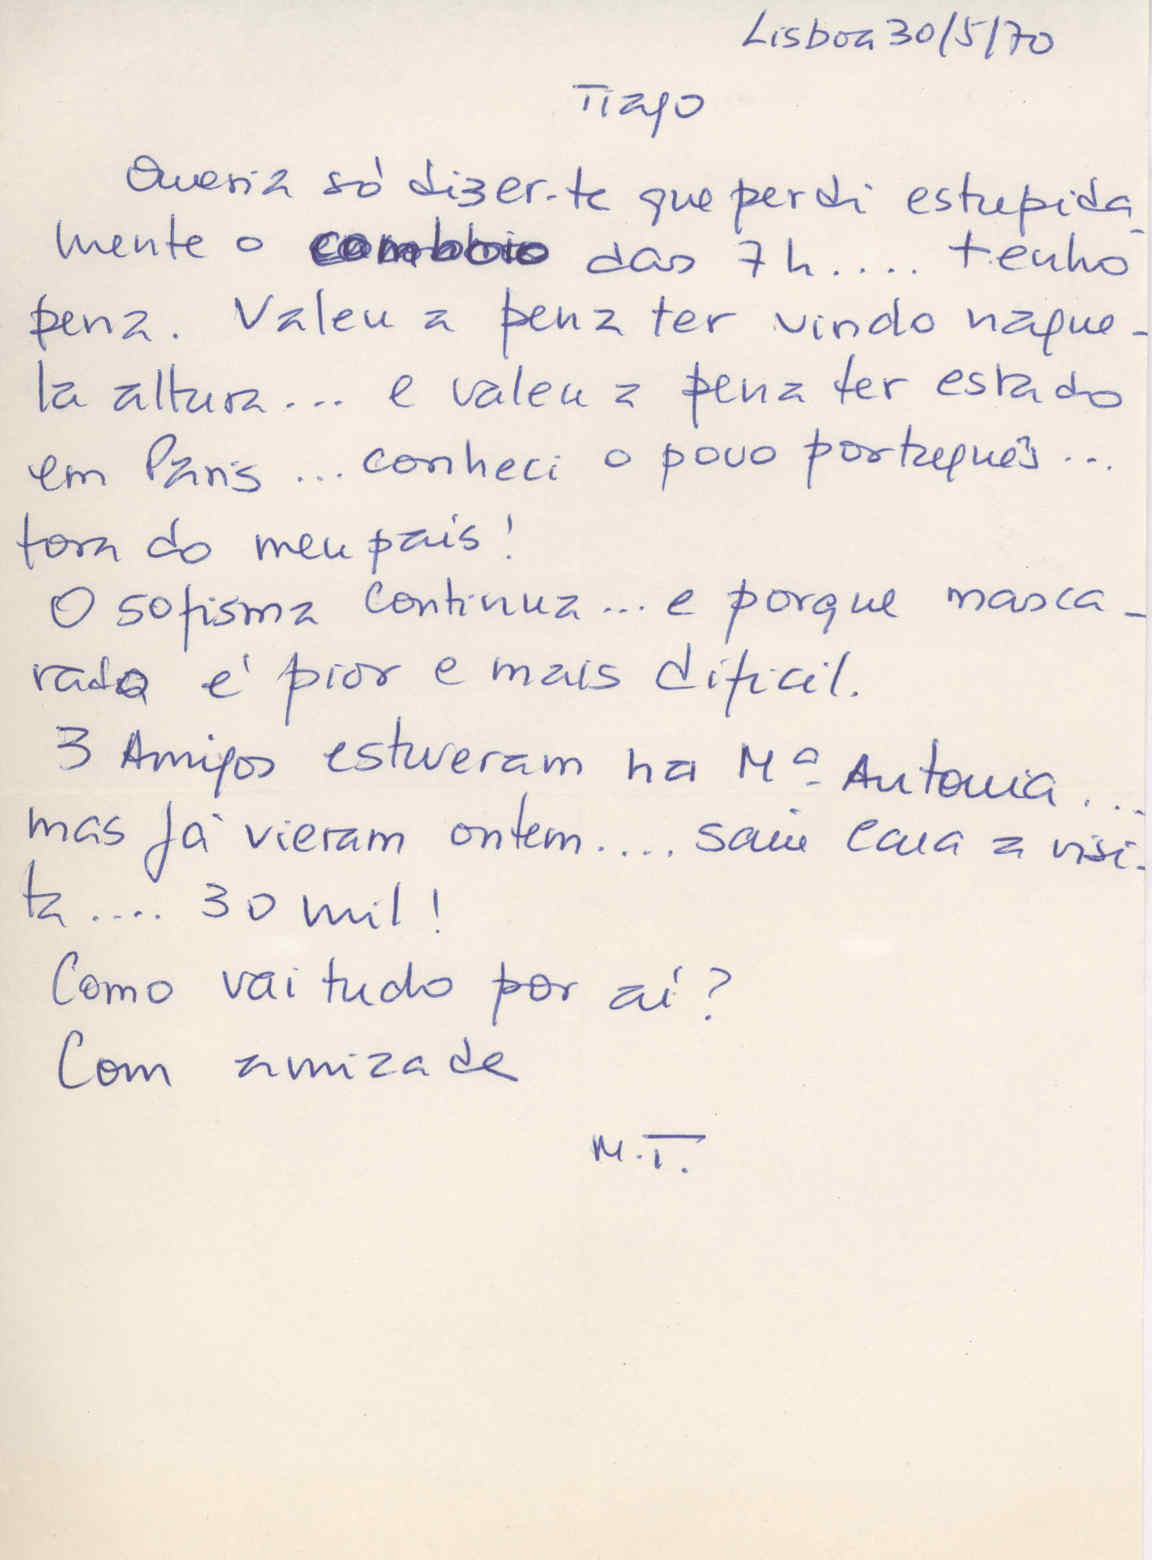 Lisboa 30/5/70
Tiago
Queria só dizer-te que perdi estupida-
mente o comboio das 7h.... tenho
pena. Valeu a pena ter vindo naque-
la altura... e valeu a pena ter estado
em Paris... conheci o povo português...
fora do meu país!
O sofisma continua... e porque masca-
rado é pior e mais dificil.
3 Amigos estiveram na Mª Antonia...
mas já vieram ontem.... saiu cara a visi-
ta.... 30 mil!
Como vai tudo por aí?
Com amizade
M.T.